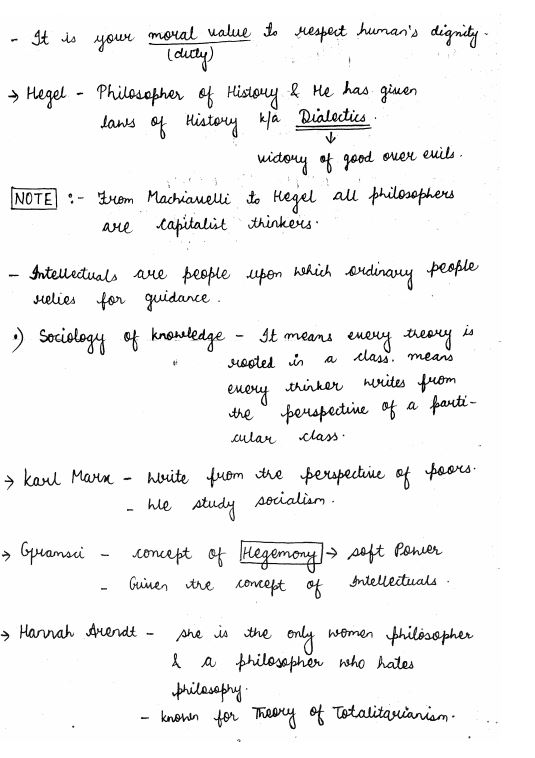 - It is your moral value to respect human's dignity.
(duty)
→ Hegel - Philosopher of History & He has given
laws of History k/a Dialectics.
↓
victory of good over evils.
NOTE :- From Machiavelli to Hegel all philosophers
are capitalist thinkers.
- Intellectuals are people upon which ordinary people
relies for guidance.
•) Sociology of knowledge - It means every theory is
rooted in a class. means
every thinker writes from
the perspective of a parti-
cular class.
→ Karl Marx - write from the perspective of poors.
- We study socialism.
→ Gramsci - concept of Hegemony → soft Power
- Given the concept of Intellectuals.
→ Hannah Arendt - she is the only women philosopher
& a philosopher who hates
philosophy.
- known for Theory of Totalitarianism.